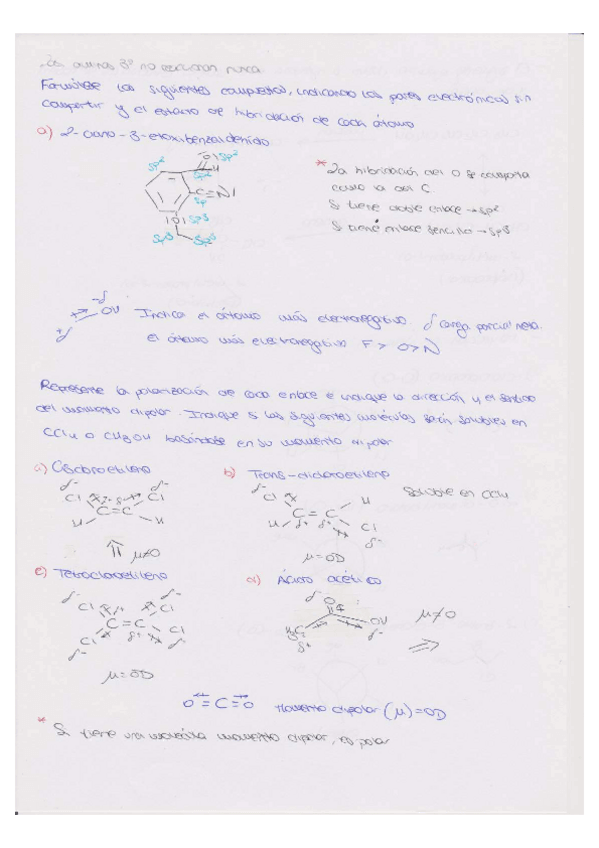 Las aminas 3º no reaccionan nunca
Formúlese los siguientes compuestos, indicando los pares electrónicos sin
compartir y el estado de hibridación de cada átomo
a) 2-ciano-3-etoxibenzaldehido
sp² O sp²
H
sp²
C≡N
sp
O sp³
sp³ sp³
* La hibridación del O se comporta
como la del C.
Si tiene doble enlace → sp²
Si tiene enlace sencillo → sp³
δ- OH
δ+
Indica el átomo más electronegativo. δ carga parcial neta.
el átomo más electronegativo F > O > N
Represente la polarización de cada enlace e indique la dirección y el sentido
del momento dipolar. Indique si las siguientes moléculas serán solubles en
CCl4 o CH3OH basándote en su momento dipolar
a) Cisdicloroetileno
b) Trans-dicloroetileno
Soluble en CCl4
δ- Cl Cl δ-
C=C
H H
μ≠0
δ- Cl H
C=C
H Cl
δ-
μ=0D
c) Tetracloroetileno
d) Ácido acético
δ- Cl Cl δ-
C=C
Cl Cl
δ- δ-
μ=0D
δ- O
H3C OH
δ+ δ-
μ≠0
O=C=O Momento dipolar (μ)=0D
* Si tiene una molécula momento dipolar, es polar